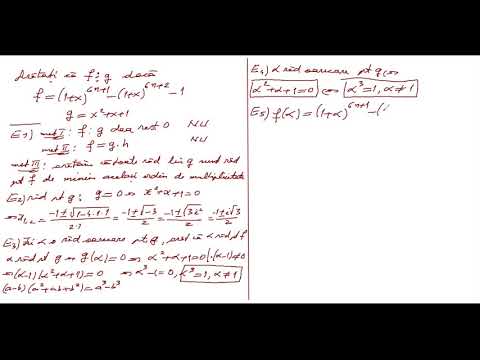 Arătați că f ⋮ g dacă
f = (1+x)^{6n+1} − (1+x)^{6n+2} − 1
g = x²+x+1
E1) met I: f : g dea rest 0 NU
met II: f = g·h NU
met III: arătăm că toate răd lui g sunt răd
pt f de minim același ordin de multiplicitate
E2) răd pt g: g = 0 ⇔ x²+x+1=0
⇒ x₁,₂ = (−1±√(1−4·1·1))/(2·1) = (−1±√−3)/2 = (−1±√(3i²))/2 = (−1±i√3)/2
E3) Fie α o răd oarecare pt g, arăt că α răd pt f
α răd pt g ⇔ g(α)=0 ⇔ α²+α+1=0 |·(α−1)≠0
⇔ (α−1)(α²+α+1)=0 ⇔ α³−1=0, α³=1, α≠1
(a−b)(a²+ab+b²)=a³−b³
E4) α răd oarecare pt g ⇔
α²+α+1=0 ⇔ α³=1, α≠1
E5) f(α) = (1+α)^{6n+1} − (